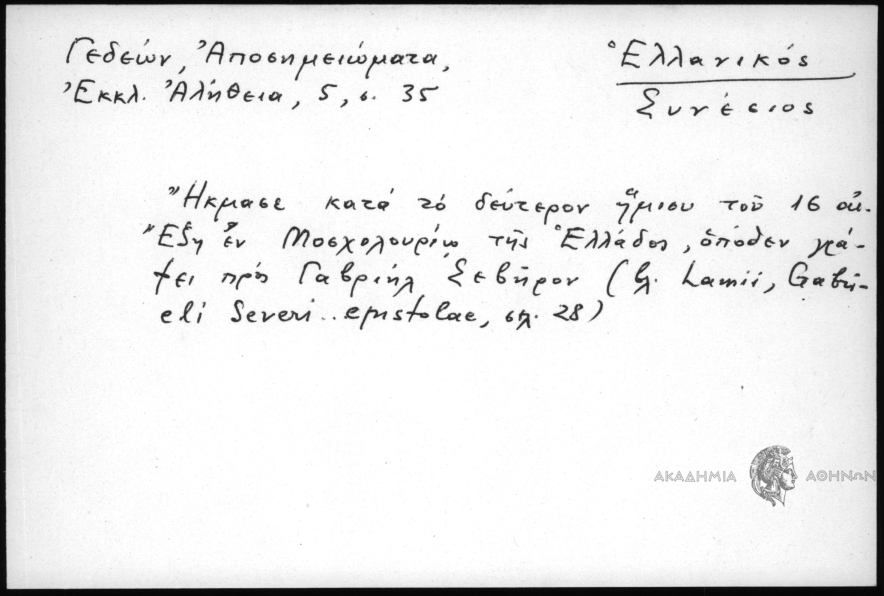 Γεδεών, Ἀποσημειώματα,
Ἐκκλ. Ἀλήθεια, 5, σ. 35
Ἑλλανικός
Συνέσιος
Ἤκμασε κατά τό δεύτερον ἥμισυ τοῦ 16 αἰ.
Ἔζη ἐν Μοσχολουρίῳ τῆς Ἑλλάδος, ὁπόθεν γρά-
φει πρός Γαβριήλ Σεβῆρον (βλ. Lamii, Gabri-
eli Severi.. epistolae, σελ. 28)
ΑΚΑΔΗΜΙΑ ΑΘΗΝΩΝ